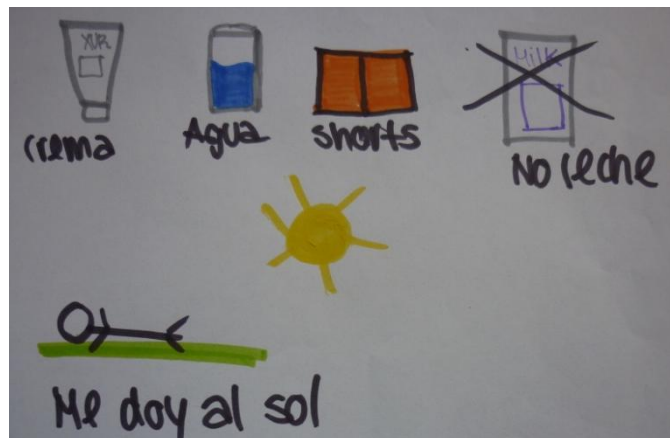 XUR
Milk
crema
Agua
shorts
No leche
Me doy al sol